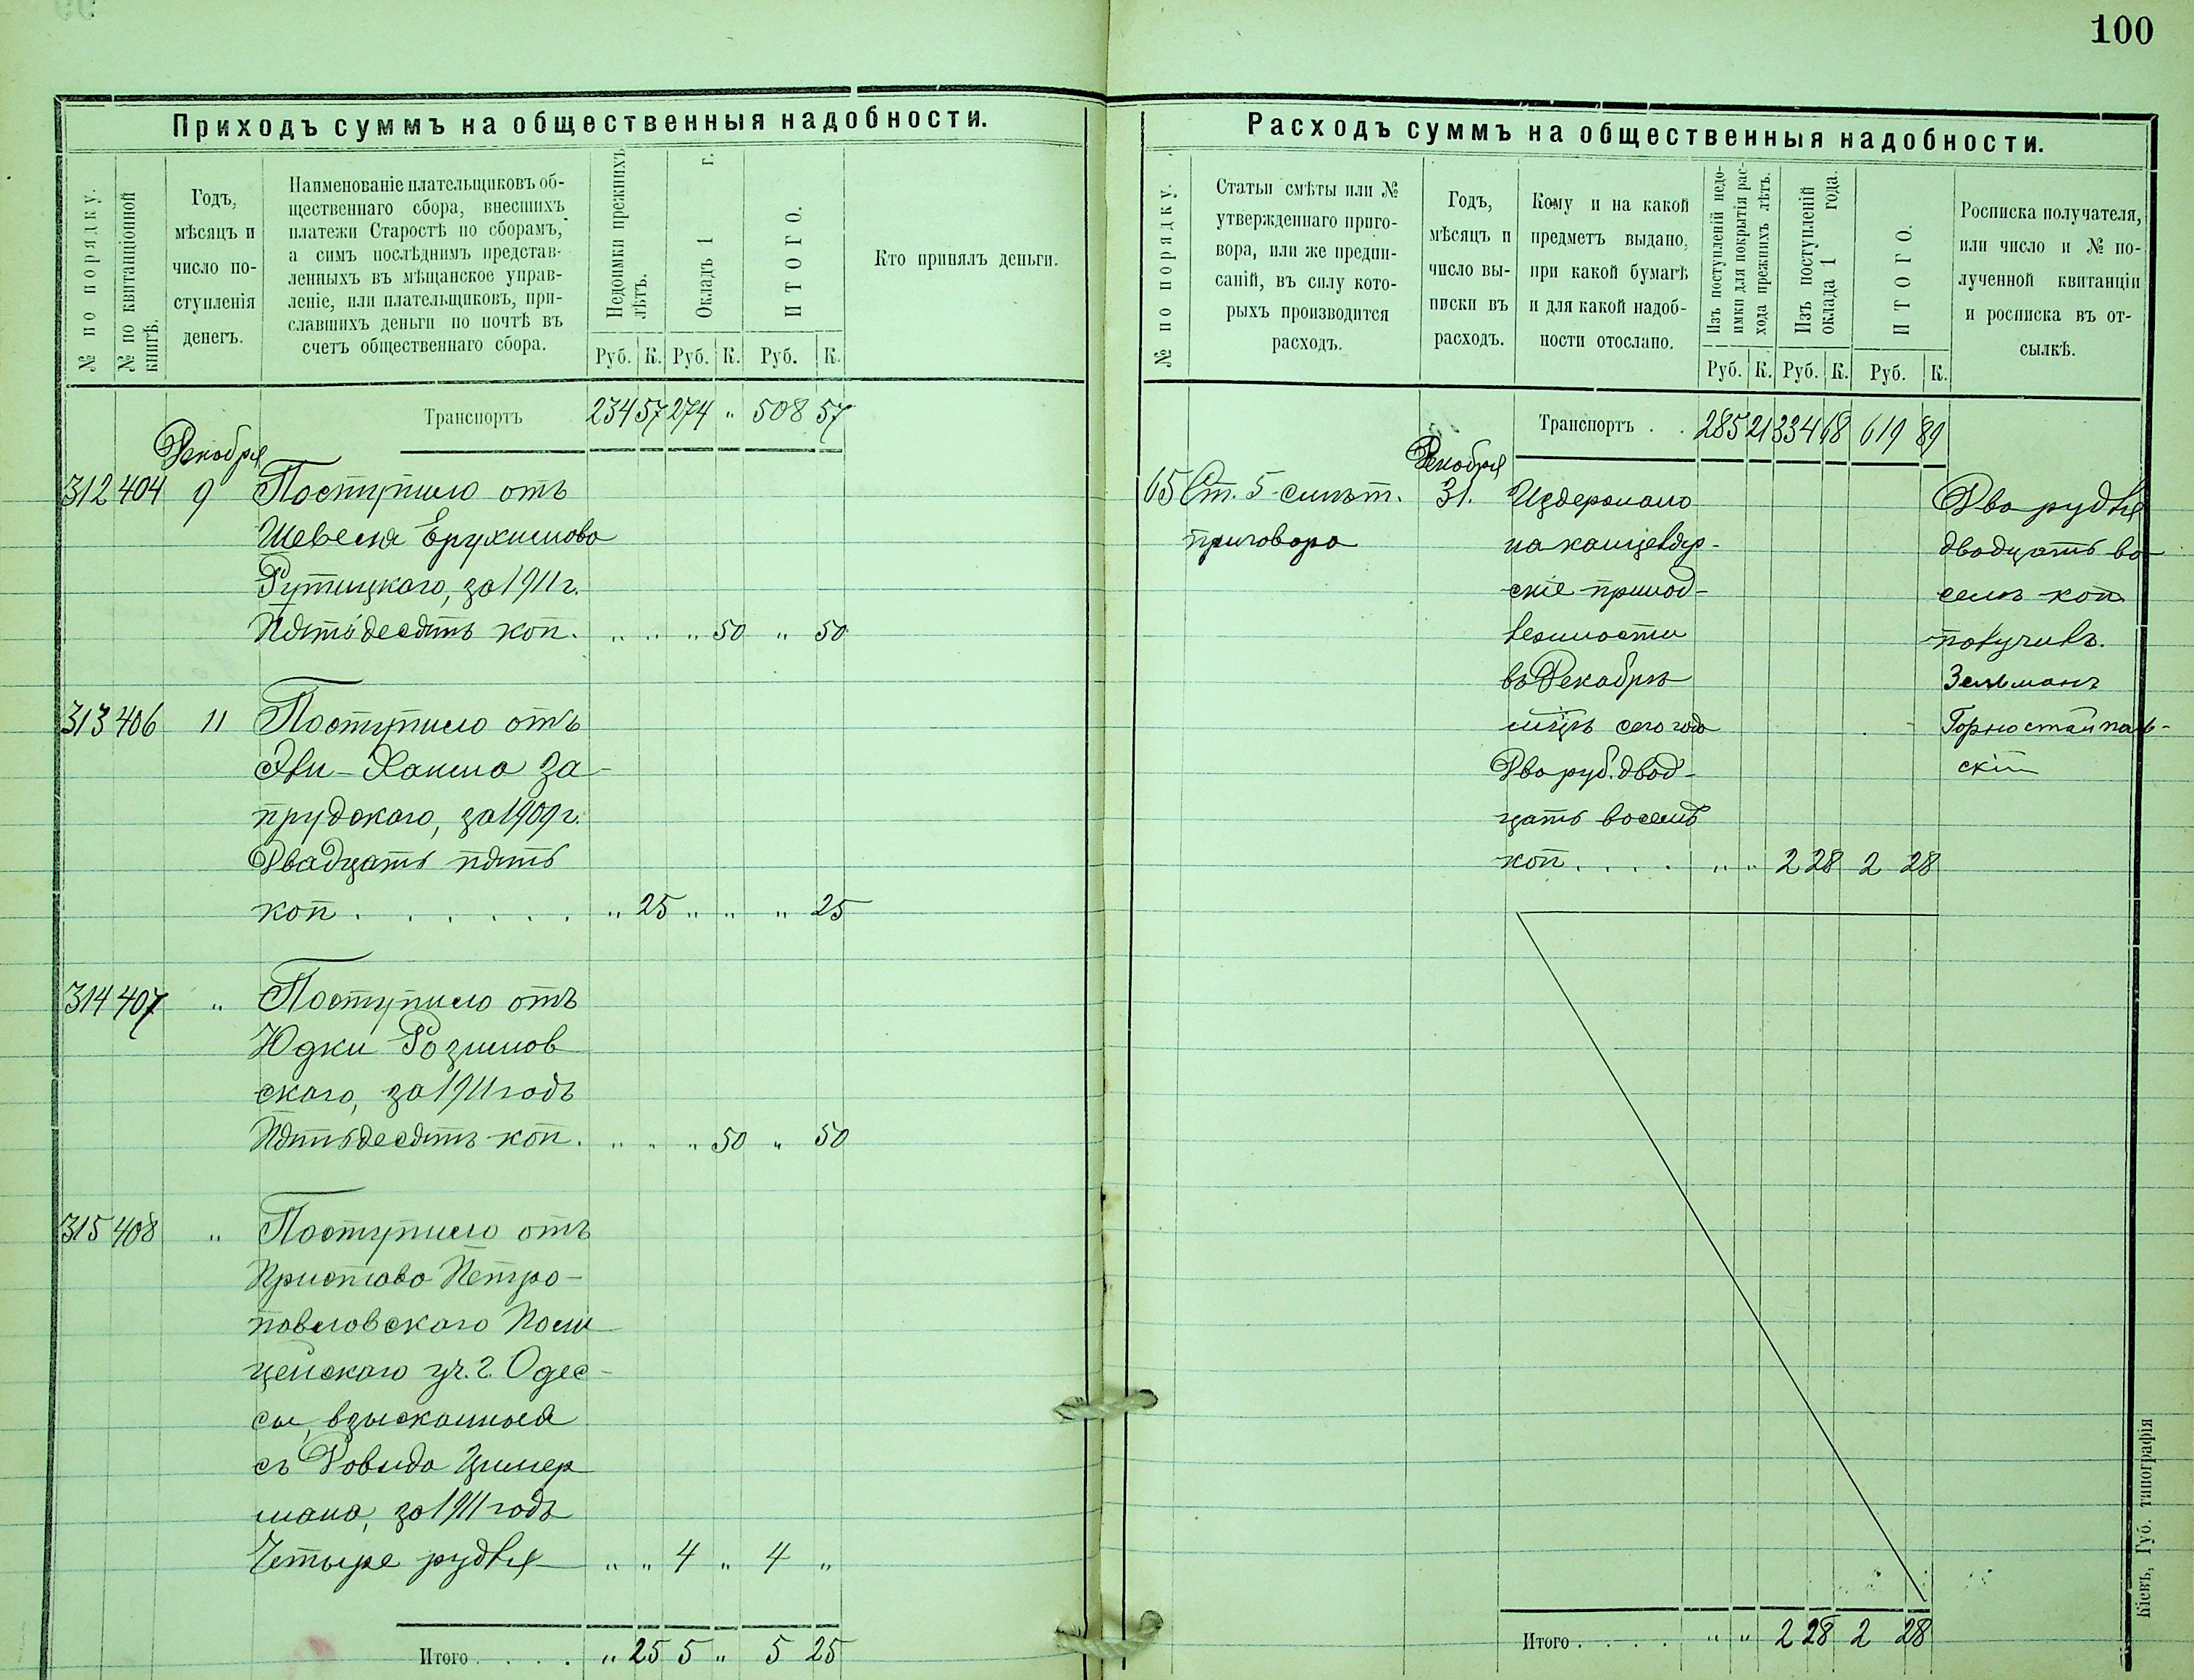 100
Приходъ суммъ на общественныя надобности.
№ по порядку.
№ по квитанціонной книгѣ.
Годъ,
мѣсяцъ и
число по-
ступленія
денегъ.
Наименованіе плательщиковъ об-
щественнаго сбора, внесшихъ
платежи Старостѣ по сборамъ,
а симъ послѣднимъ представ-
ленныхъ въ мѣщанское управ-
леніе, или плательщиковъ, при-
славшихъ деньги по почтѣ въ
счетъ общественнаго сбора.
Недоимки прежнихъ
лѣтъ.
Окладъ 1 г.
ИТОГО.
Руб. К. Руб. К. Руб. К.
Кто принялъ деньги.
Транспортъ 234 57 274 " 508 57
Декабря
312 404 9 Поступило отъ
Шевеля Ерухимова
Рутицкого, за 1911 г.
Пятьдесятъ коп. " " " 50 " 50
313 406 11 Поступило отъ
Эли-Хаима За-
прудского, за 1909 г.
Двадцать пять
коп. . . . . . " 25 " " " 25
314 407 " Поступило отъ
Юдки Розумов
ского, за 1911 годъ
Пятьдесятъ коп. " " " 50 " 50
315 408 " Поступило отъ
Пристава Петро-
павловского Поли
цейского уч. г. Одес-
сы, взысканныя
съ Довида Цимер
мана, за 1911 годъ
Четыре рубля " " 4 " 4 "
Итого . . . . " 25 5 " 5 25
Расходъ суммъ на общественныя надобности.
№ по порядку.
Статьи смѣты или №
утвержденнаго приго-
вора, или же предпи-
саній, въ силу кото-
рыхъ производится
расходъ.
Годъ,
мѣсяцъ и
число вы-
писки въ
расходъ.
Кому и на какой
предметъ выдано,
при какой бумагѣ
и для какой надоб-
ности отослано.
Изъ поступленій недо-
имки для покрытія рас-
хода прежнихъ лѣтъ.
Изъ поступленій
оклада 1 года.
ИТОГО.
Руб. К. Руб. К. Руб. К.
Росписка получателя,
или число и № по-
лученной квитанціи
и росписка въ от-
сылкѣ.
Транспортъ . . 285 21 334 68 619 89
Декабря
65 Ст. 5 смѣт. 31. Издержано
приговора на канцеляр-
скіе принад-
лежности
въ Декабрѣ
мѣцѣ сего года
Два руб. двад-
цать восемь
коп. . . . . " " 2 28 2 28
Два рубля
двадцать во
семь коп.
получилъ.
Зельманъ
Горностайполь-
скій
Итого . . . . " " 2 28 2 28
Кіевъ, Губ. типографія